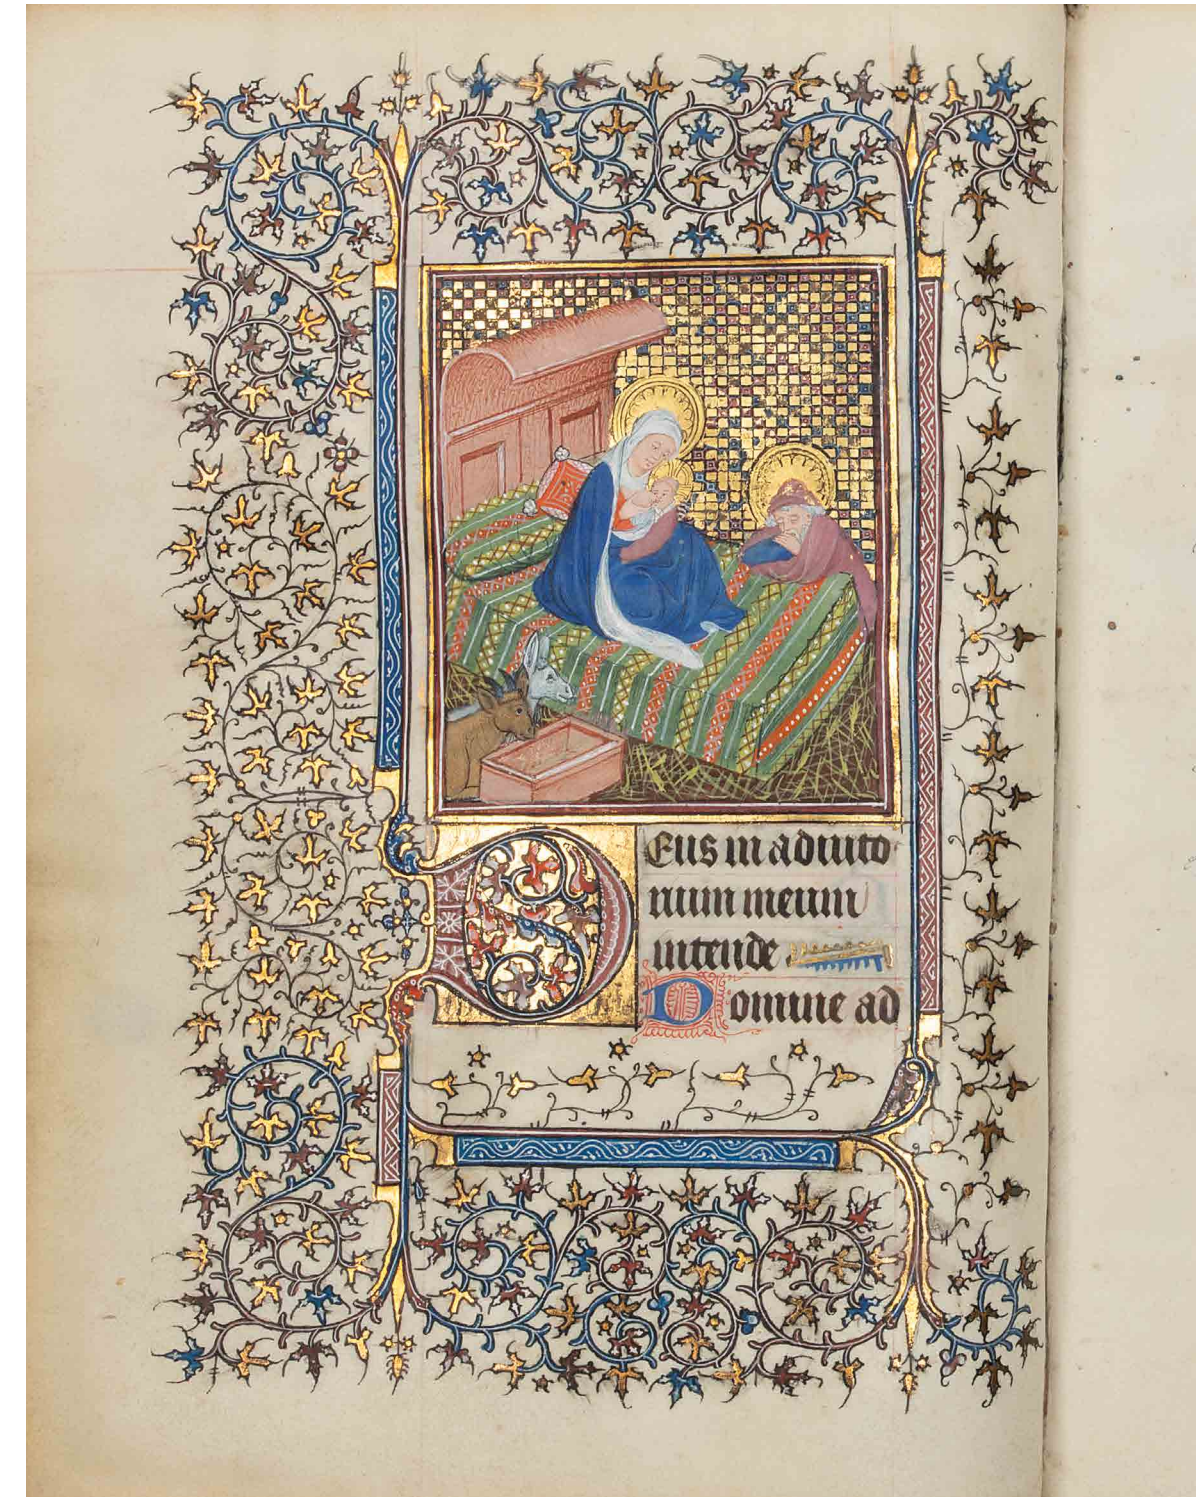 Deus in adiuto
rium meum
intende
Domine ad